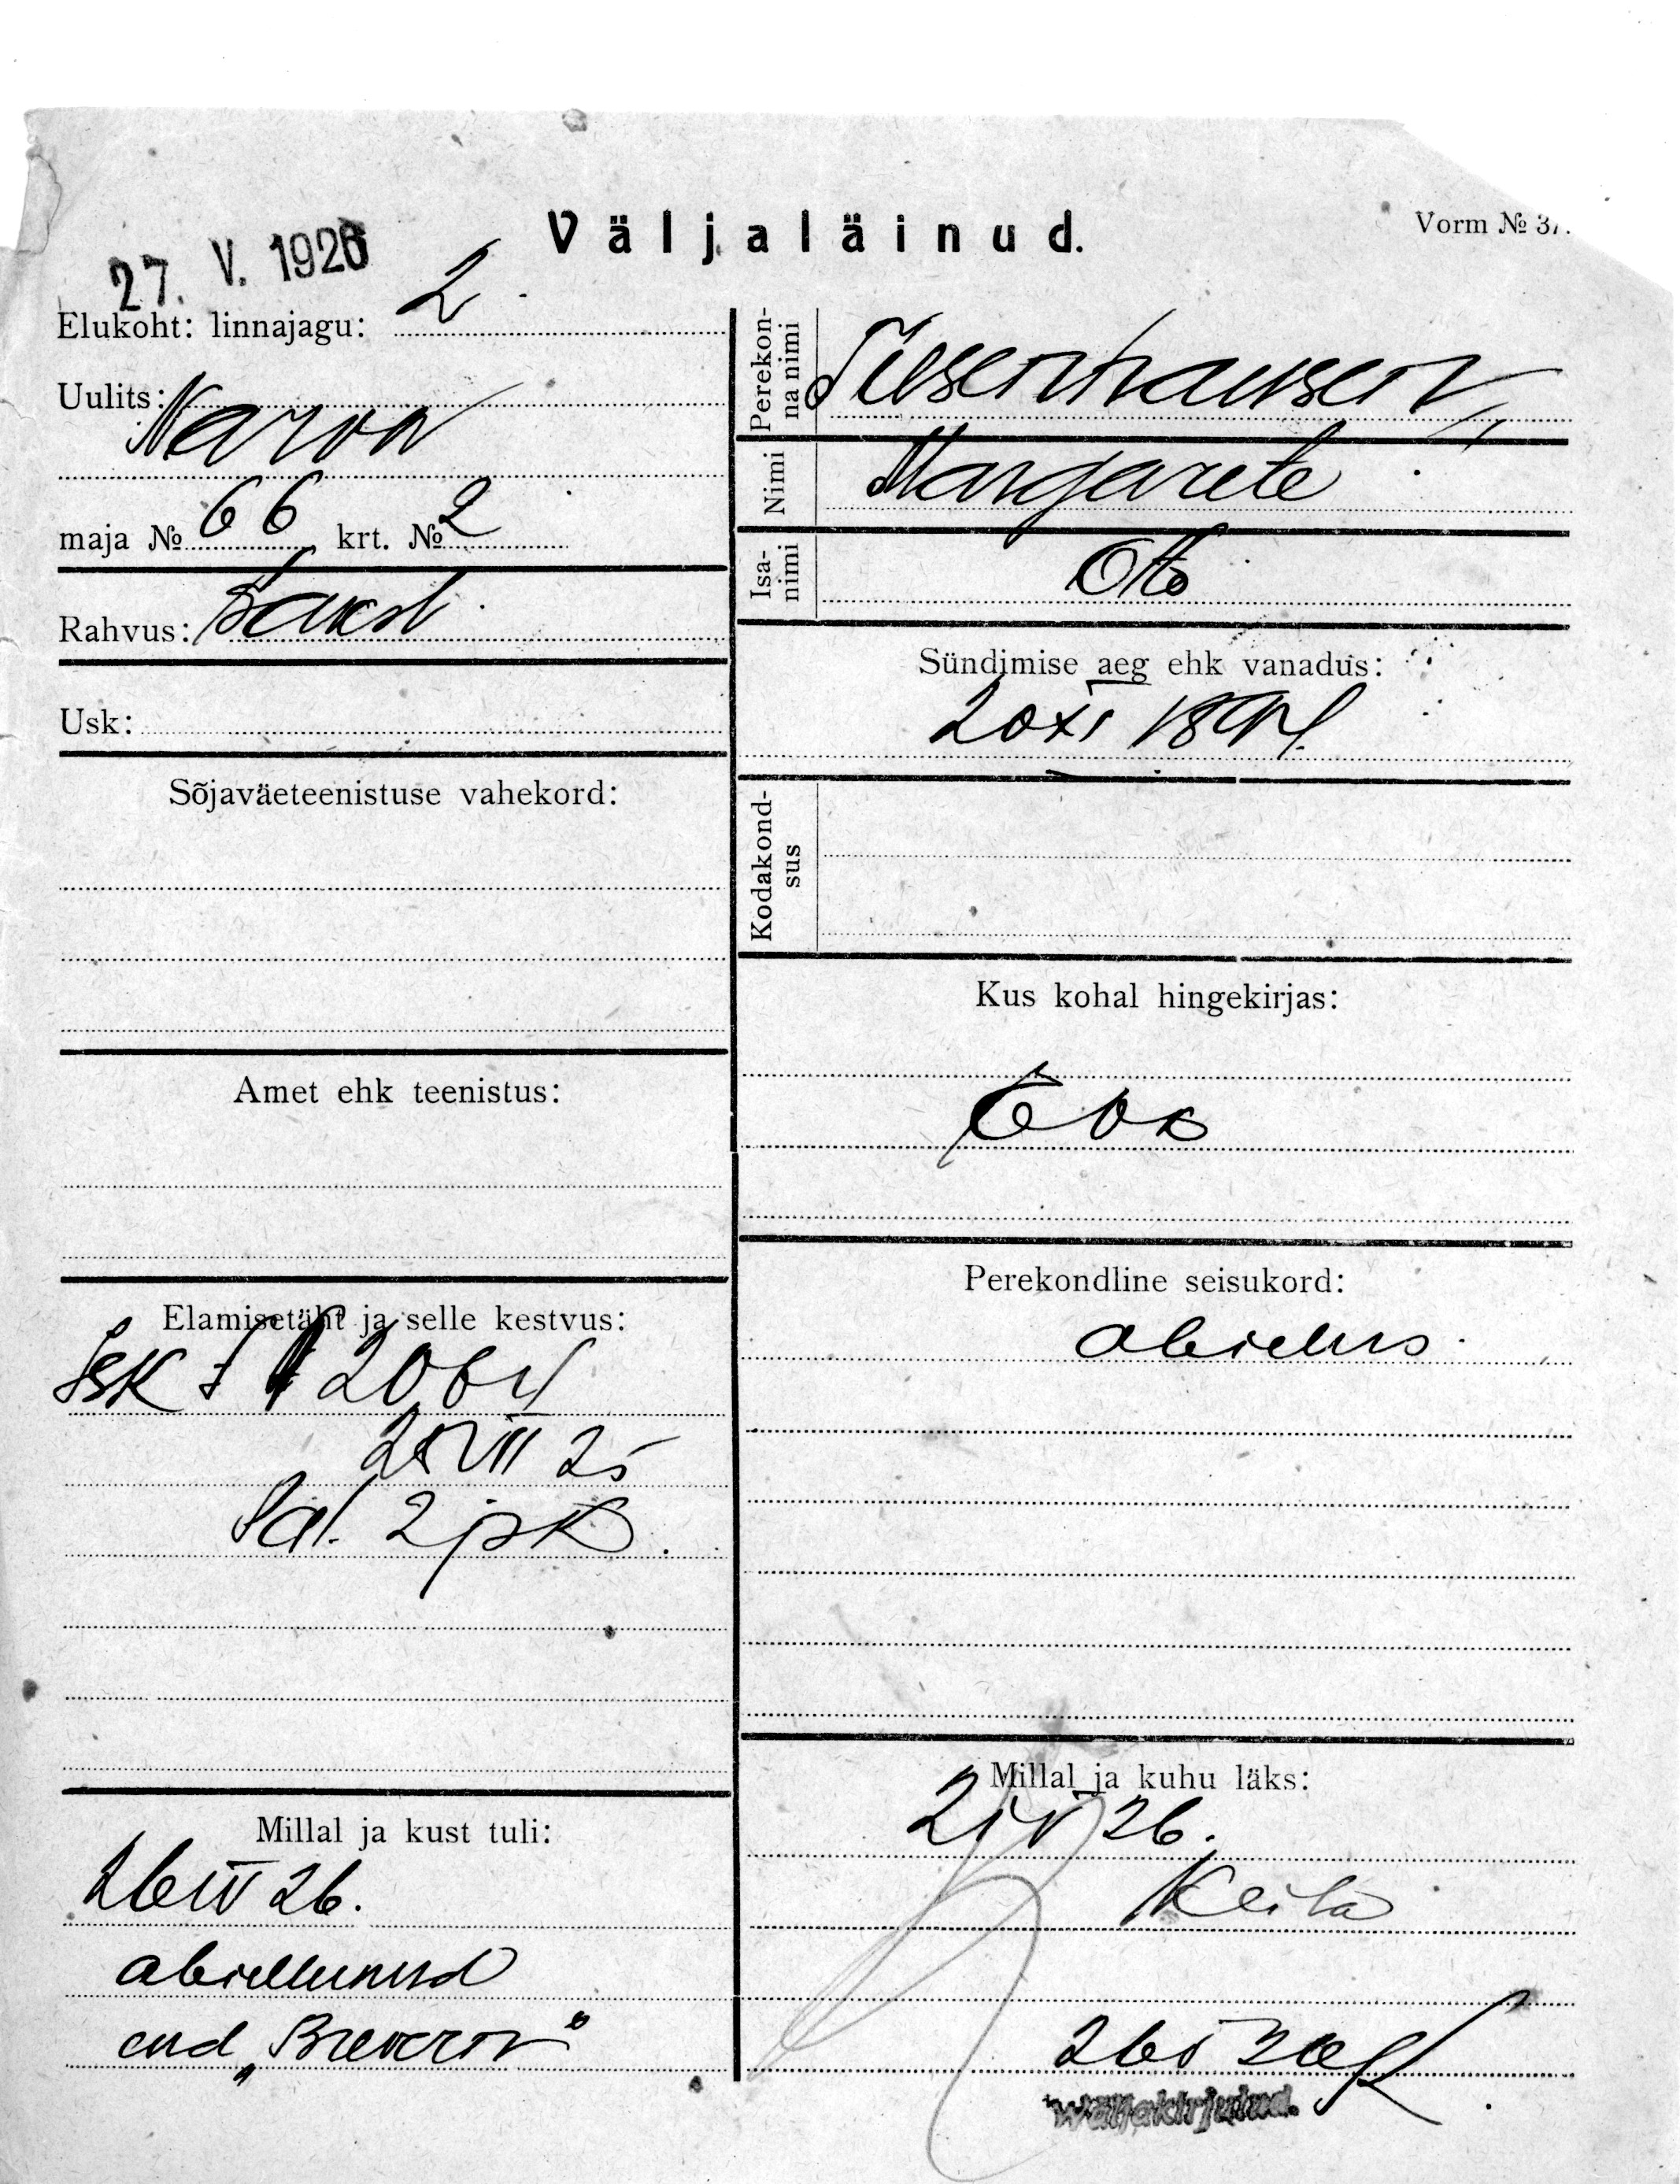 Väljaläinud.
Vorm № 37.
27. V. 1926
Elukoht: linnajagu: 2
Uulits: Narva
maja № 66 krt. № 2
Rahvus: saksl
Usk:
Sõjaväeteenistuse vahekord:
Amet ehk teenistus:
Elamisetäht ja selle kestvus:
Isk
25
Tal. 2 jsk
Millal ja kust tuli:
26 IV 26.
abiellunud
end „Brevern"
Perekonna nimi Tiesenhausen,
Nimi Margarete
Isanimi Otto
Sündimise aeg ehk vanadus:
20 XI
Kodakondsus
Kus kohal hingekirjas:
Perekondline seisukord:
abielus
Millal ja kuhu läks:
26.
Keila
Wäljakirjutud.